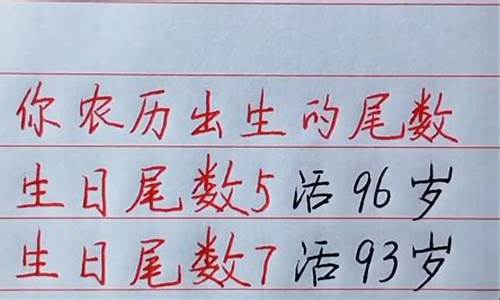 你农历出生的尾数
生日尾数5活96岁
生日尾数7活93岁